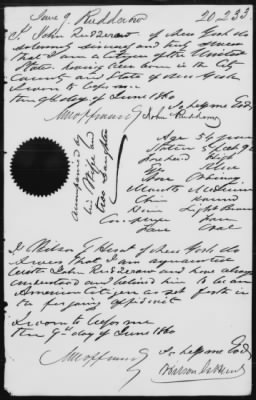 June 9 Ruddarow
20,233
I, John Ruddarow of New York do
solemnly sincerely and truly swear
that I am a citizen of the United
States having been born in the City
County and State of New York
Sworn to before me
the 9th day of June 1860
So help me God
John Ruddarow
accompanied by
his Wife and
two daughters
Age 54 years
Stature 5 feet 9
Forehead High
Eyes Blue
Nose Ordinary
Mouth Medium
Chin Round
Hair Light Brown
Complexion Fair
Face Oval
I, Wilson G Hunt of New York do
swear that I am acquainted
with John Ruddarow and have always
understood and believed him to be an
American Citizen as set forth in
the foregoing affidavit
Sworn to before me
the 9th day of June 1860
So help me God
Wilson G Hunt